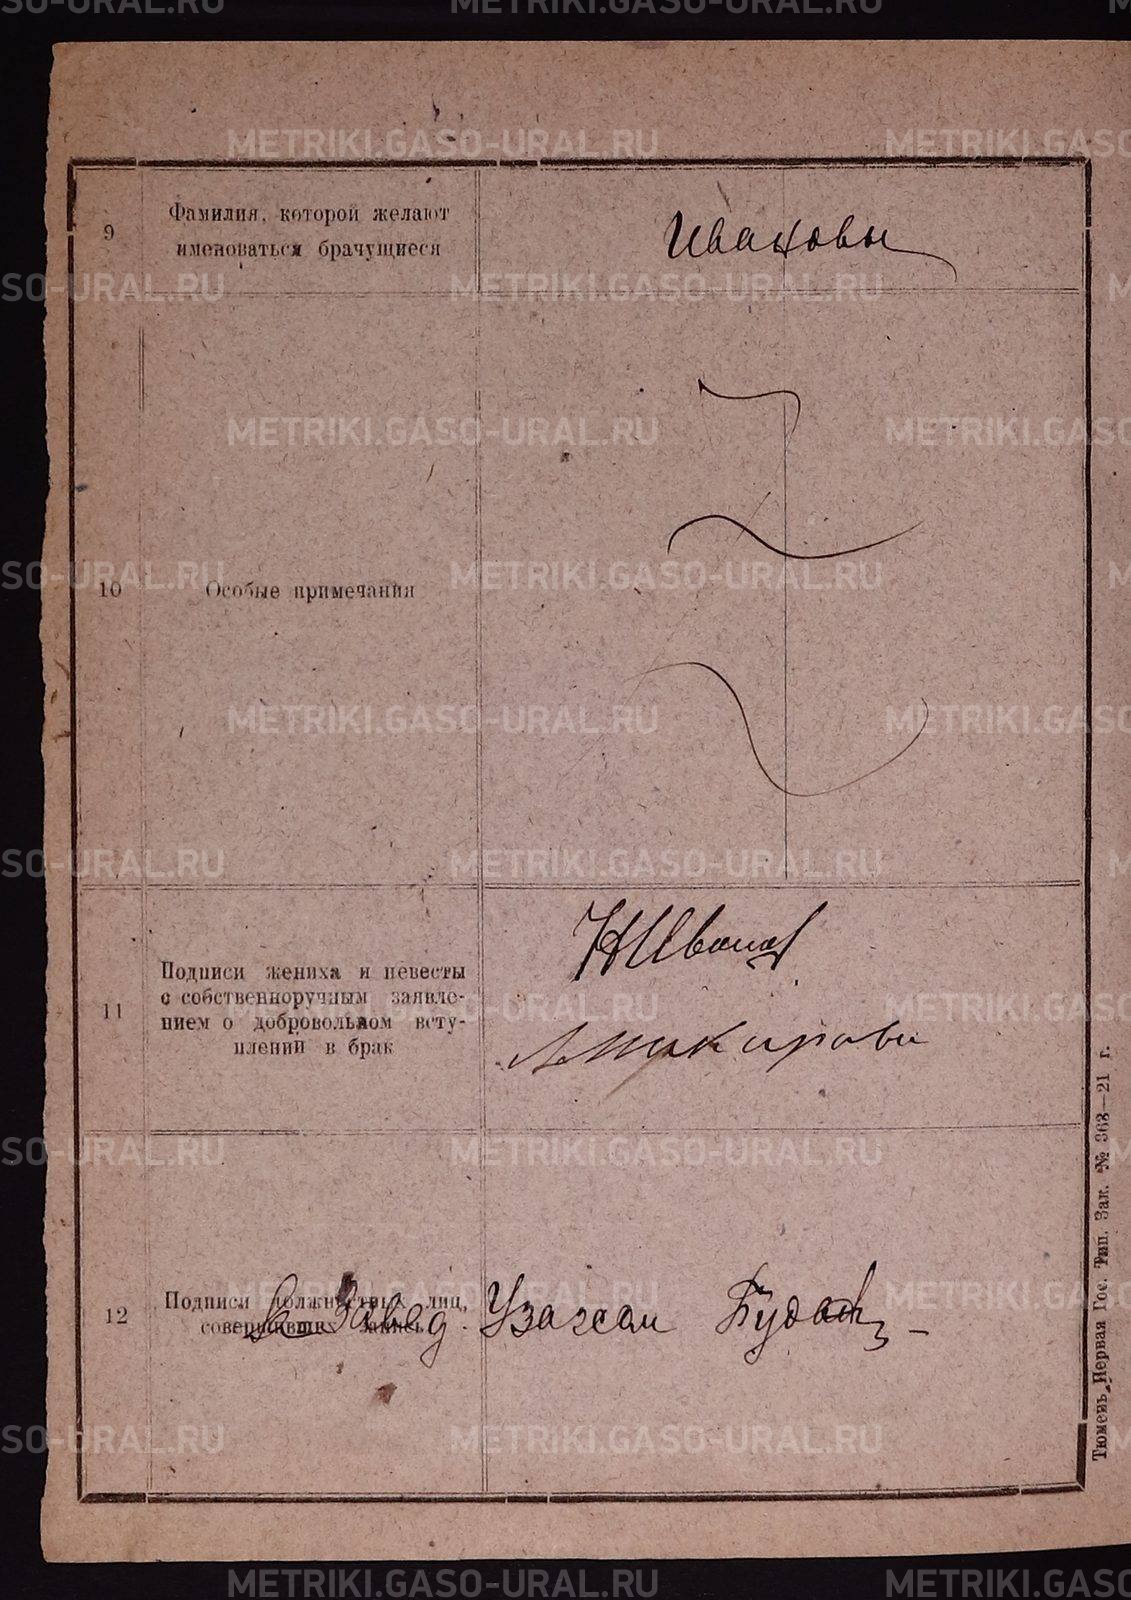 METRIKI.GASO-URAL.RU
9
Фамилия, которой желают
именоваться брачущиеся
Ивановы
10
Особые примечания
11
Подписи жениха и невесты
с собственноручным заявле-
нием о добровольном всту-
плении в брак
НИванов
12
Подписи должностных лиц,
совершивших запись
Завед
Тюмень, Первая Гос. Тип. Зак. № 368—21 г.